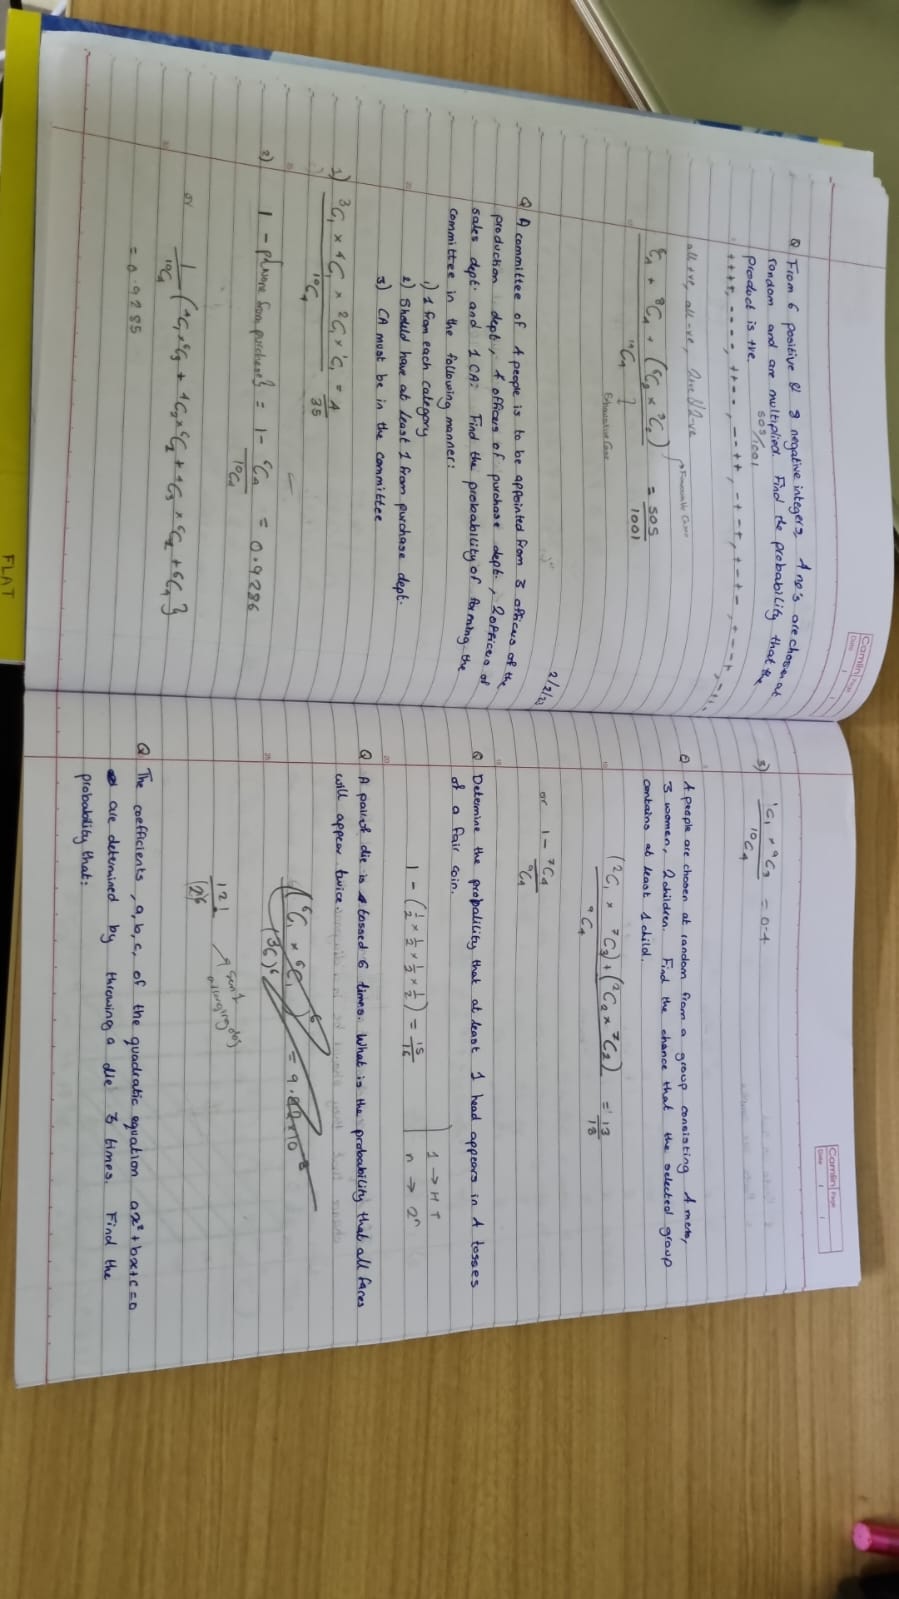 Camlin Page
Date
Q From 6 positive & 8 negative integers 4 no's are chosen at
random and are multiplied. Find the probability that the
product is +ve. 505/1001
++++, ----, ++--, --++, -++-, +-+-, +--+, -+-+
all +ve, all -ve, 2+ve & 2-ve
⁶C₄ + ⁸C₄ + (⁶C₂ × ⁸C₂) → Favourable Cases
¹⁴C₄ = 505/1001
Exhaustive Cases
2/2/23
Q A committee of 4 people is to be appointed from 3 officers of the
production dept, 4 officers of purchase dept, 2 officers of
sales dept and 1 CA. Find the probability of forming the
committee in the following manner:
1) 1 from each category
2) Should have at least 1 from purchase dept.
3) CA must be in the committee
1) ³C₁ × ⁴C₁ × ²C₁ × ¹C₁ = 4
¹⁰C₄ 35
2) 1 - P{None from purchase} = 1 - ⁶C₄ = 0.9286
¹⁰C₄
or 1/¹⁰C₄ (⁴C₁ × ⁶C₃ + ⁴C₂ × ⁶C₂ + ⁴C₃ × ⁶C₁ + ⁴C₄)
= 0.9285
FLAT
Camlin Page
Date
3) ¹C₁ × ⁹C₃ = 0.4
¹⁰C₄
Q 4 people are chosen at random from a group consisting 4 men,
3 women, 2 children. Find the chance that the selected group
contains at least 1 child.
(²C₁ × ⁷C₃) + (²C₂ × ⁷C₂) = 13
⁹C₄ 18
or 1 - ⁷C₄
⁹C₄
Q Determine the probability that at least 1 head appears in 4 tosses
of a fair coin.
1 → H T
n → 2ⁿ
1 - (1/2 × 1/2 × 1/2 × 1/2) = 15/16
Q A pair of die is tossed 6 times. What is the probability that all faces
will appear twice.
(⁶C₁ × ⁶C₁)⁶
(36)⁶
12!
(2)⁶
Q The coefficients, a, b, c, of the quadratic equation ax²+bx+c=0
are determined by throwing a die 3 times. Find the
probability that: